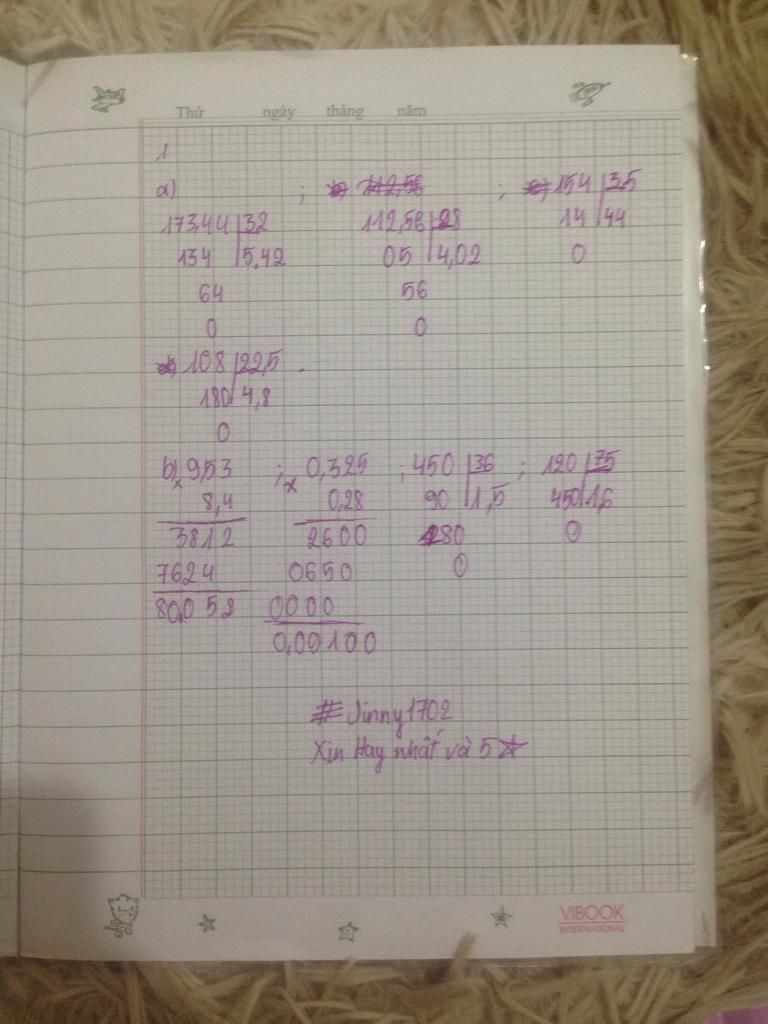 Thứ ngày tháng năm
1
a) ; ; 154 35
173,44 32 112,56 28 14 44
134 5,42 05 4,02 0
64 56
0 0
108 22,5
180 4,8
0
b) 9,53 ; 0,325 ; 450 36 ; 120 75
x 8,4 x 0,28 90 1,5 450 1,6
3812 2600 280 0
7624 0650 0
80,052 0000
0,09100
# Jinny1702
Xin Hay nhất và 5 ☆
VIBOOK
INTERNATIONAL